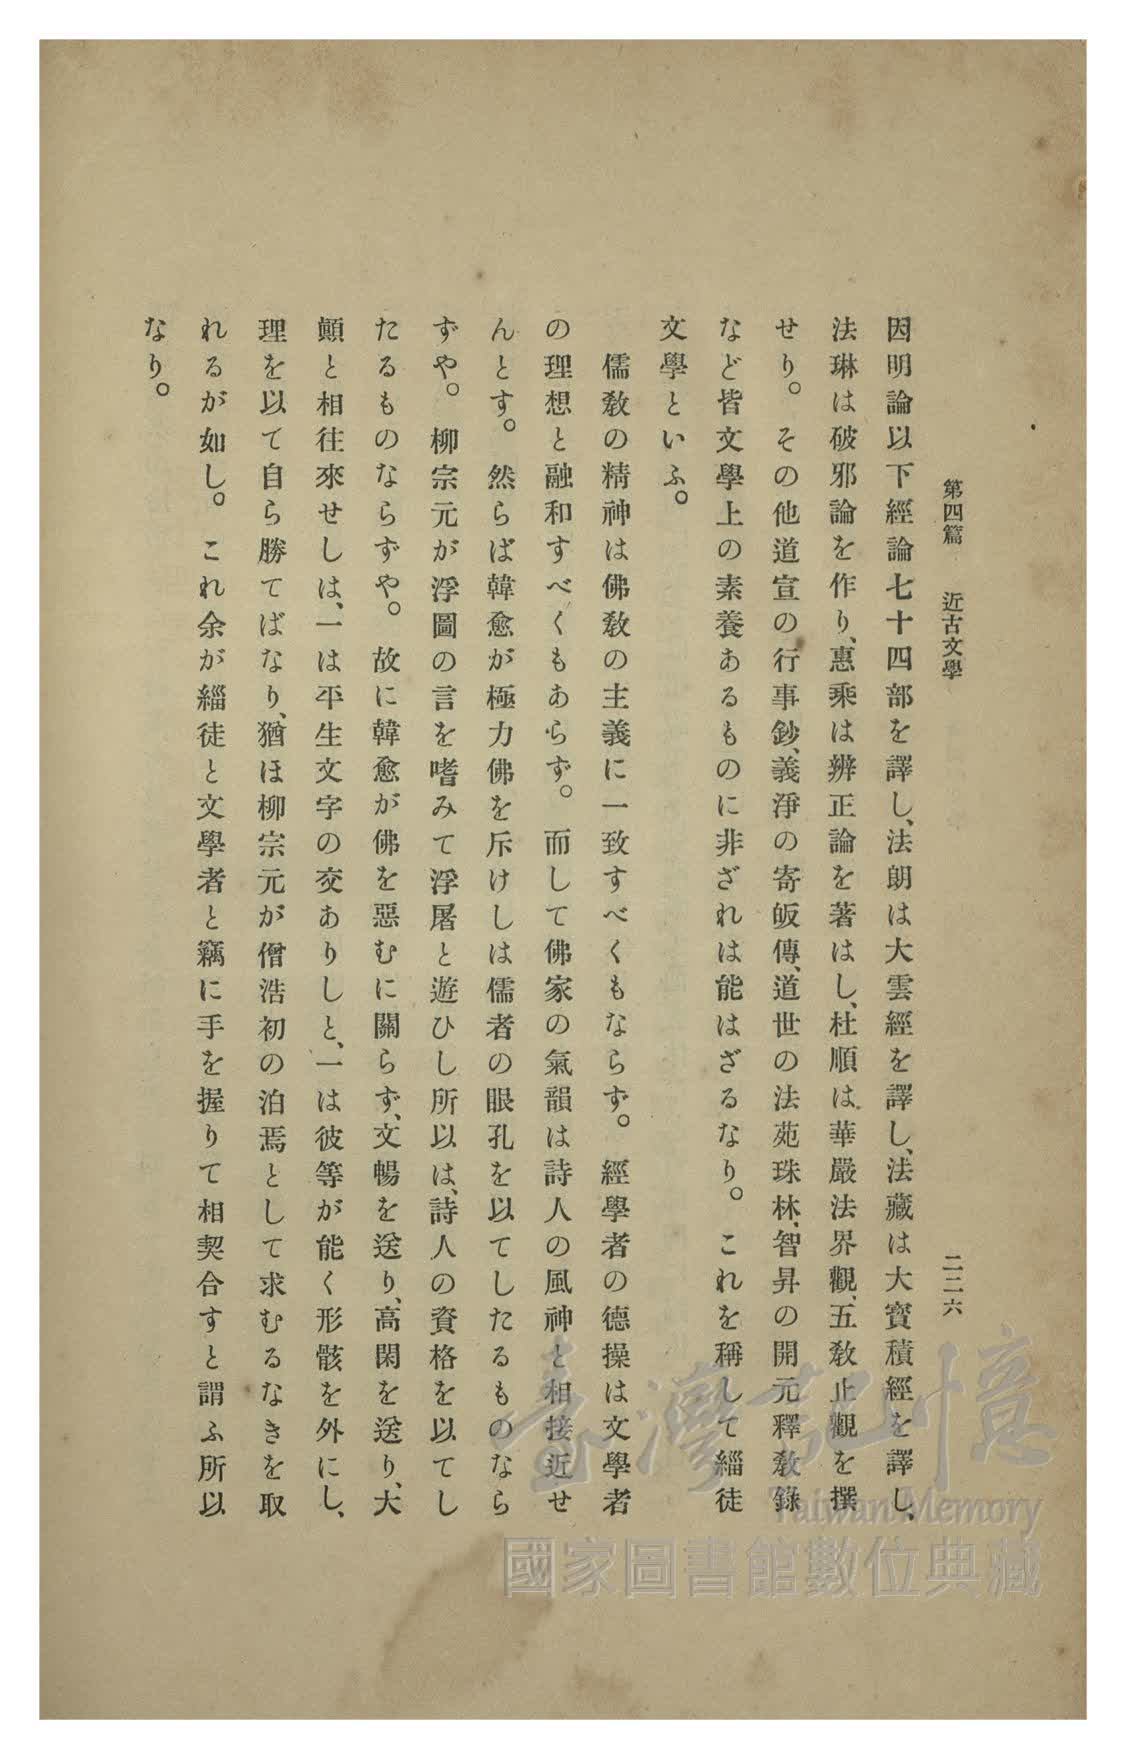 第四篇 近古文學 二二六
因明論以下經論七十四部を譯し、法朗は大雲經を譯し、法藏は大寶積經を譯し、
法琳は破邪論を作り、惠乘は辨正論を著はし、杜順は華嚴法界觀、五敎止觀を撰
せり。その他道宣の行事鈔、義淨の寄皈傳、道世の法苑珠林、智昇の開元釋敎錄
など皆文學上の素養あるものに非ざれは能はざるなり。これを稱して緇徒
文學といふ。
儒敎の精神は佛敎の主義に一致すべくもならず。經學者の德操は文學者
の理想と融和すべくもあらず。而して佛家の氣韻は詩人の風神と相接近せ
んとす。然らば韓愈が極力佛を斥けしは儒者の眼孔を以てしたるものなら
ずや。柳宗元が浮圖の言を嗜みて浮屠と遊ひし所以は、詩人の資格を以てし
たるものならずや。故に韓愈が佛を惡むに關らず、文暢を送り、高閑を送り、大
顚と相往來せしは、一は平生文字の交ありしと、一は彼等が能く形骸を外にし、
理を以て自ら勝てばなり、猶ほ柳宗元が僧浩初の泊焉として求むるなきを取
れるが如し。これ余が緇徒と文學者と竊に手を握りて相契合すと謂ふ所以
なり。
臺灣記憶
Taiwan Memory
國家圖書館數位典藏